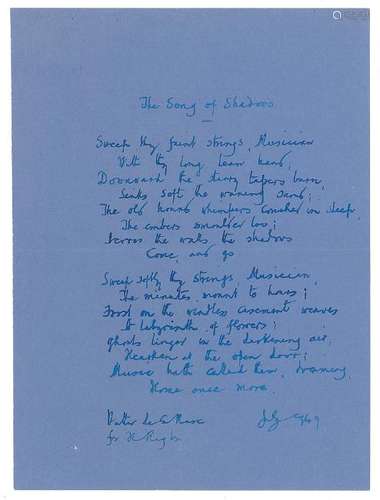 The Song of Shadows
Sweep thy faint strings, Musician
With thy long lean hand;
Downward the starry tapers burn,
Sinks soft the waning sand;
The old hound whimpers couched in sleep,
The embers smoulder low;
Across the walls the shadows
Come, and go
Sweep softly thy strings, Musician,
The minutes mount to hours;
Frost on the windless casement weaves
A labyrinth of flowers;
Ghosts linger in the darkening air,
Hearken at the open door;
Music hath called them, dreaming,
Home once more.
Walter de la Mare
for